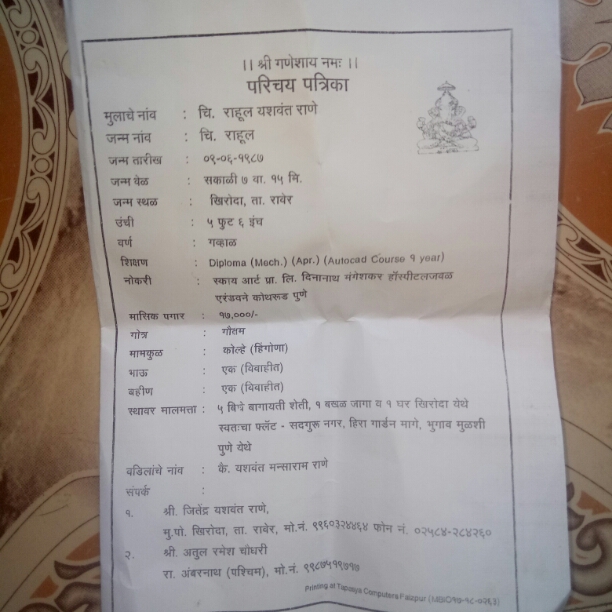 ।। श्री गणेशाय नमः ।।
परिचय पत्रिका
मुलाचे नांव : चि. राहूल यशवंत राणे
जन्म नांव : चि. राहूल
जन्म तारीख : ०९-०६-१९८७
जन्म वेळ : सकाळी ७ वा. १५ मि.
जन्म स्थळ : खिरोदा, ता. रावेर
उंची : ५ फुट ६ इंच
वर्ण : गव्हाळ
शिक्षण : Diploma (Mech.) (Apr.) (Autocad Course १ year)
नोकरी : स्काय आर्ट प्रा. लि. दिनानाथ मंगेशकर हॉस्पीटलजवळ
एरंडवने कोथरूड पुणे
मासिक पगार : १७,०००/-
गोत्र : गौतम
मामकुळ : कोल्हे (हिंगोणा)
भाऊ : एक (विवाहीत)
बहीण : एक (विवाहीत)
स्थावर मालमत्ता : ५ बिघे बागायती शेती, १ बखळ जागा व १ घर खिरोदा येथे
स्वतःचा फ्लॅट - सदगुरू नगर, हिरा गार्डन मागे, भुगाव मुळशी
पुणे येथे
वडिलांचे नांव : कै. यशवंत मन्साराम राणे
संपर्क :
१. श्री. जितेंद्र यशवंत राणे,
मु.पो. खिरोदा, ता. रावेर, मो.नं. ९९६०३२४४६४ फोन नं. ०२५८४-२८४२६०
२. श्री. अतुल रमेश चौधरी
रा. अंबरनाथ (पश्चिम), मो.नं. ९९८७५१९७१७
Printing at Tapasya Computers Faizpur